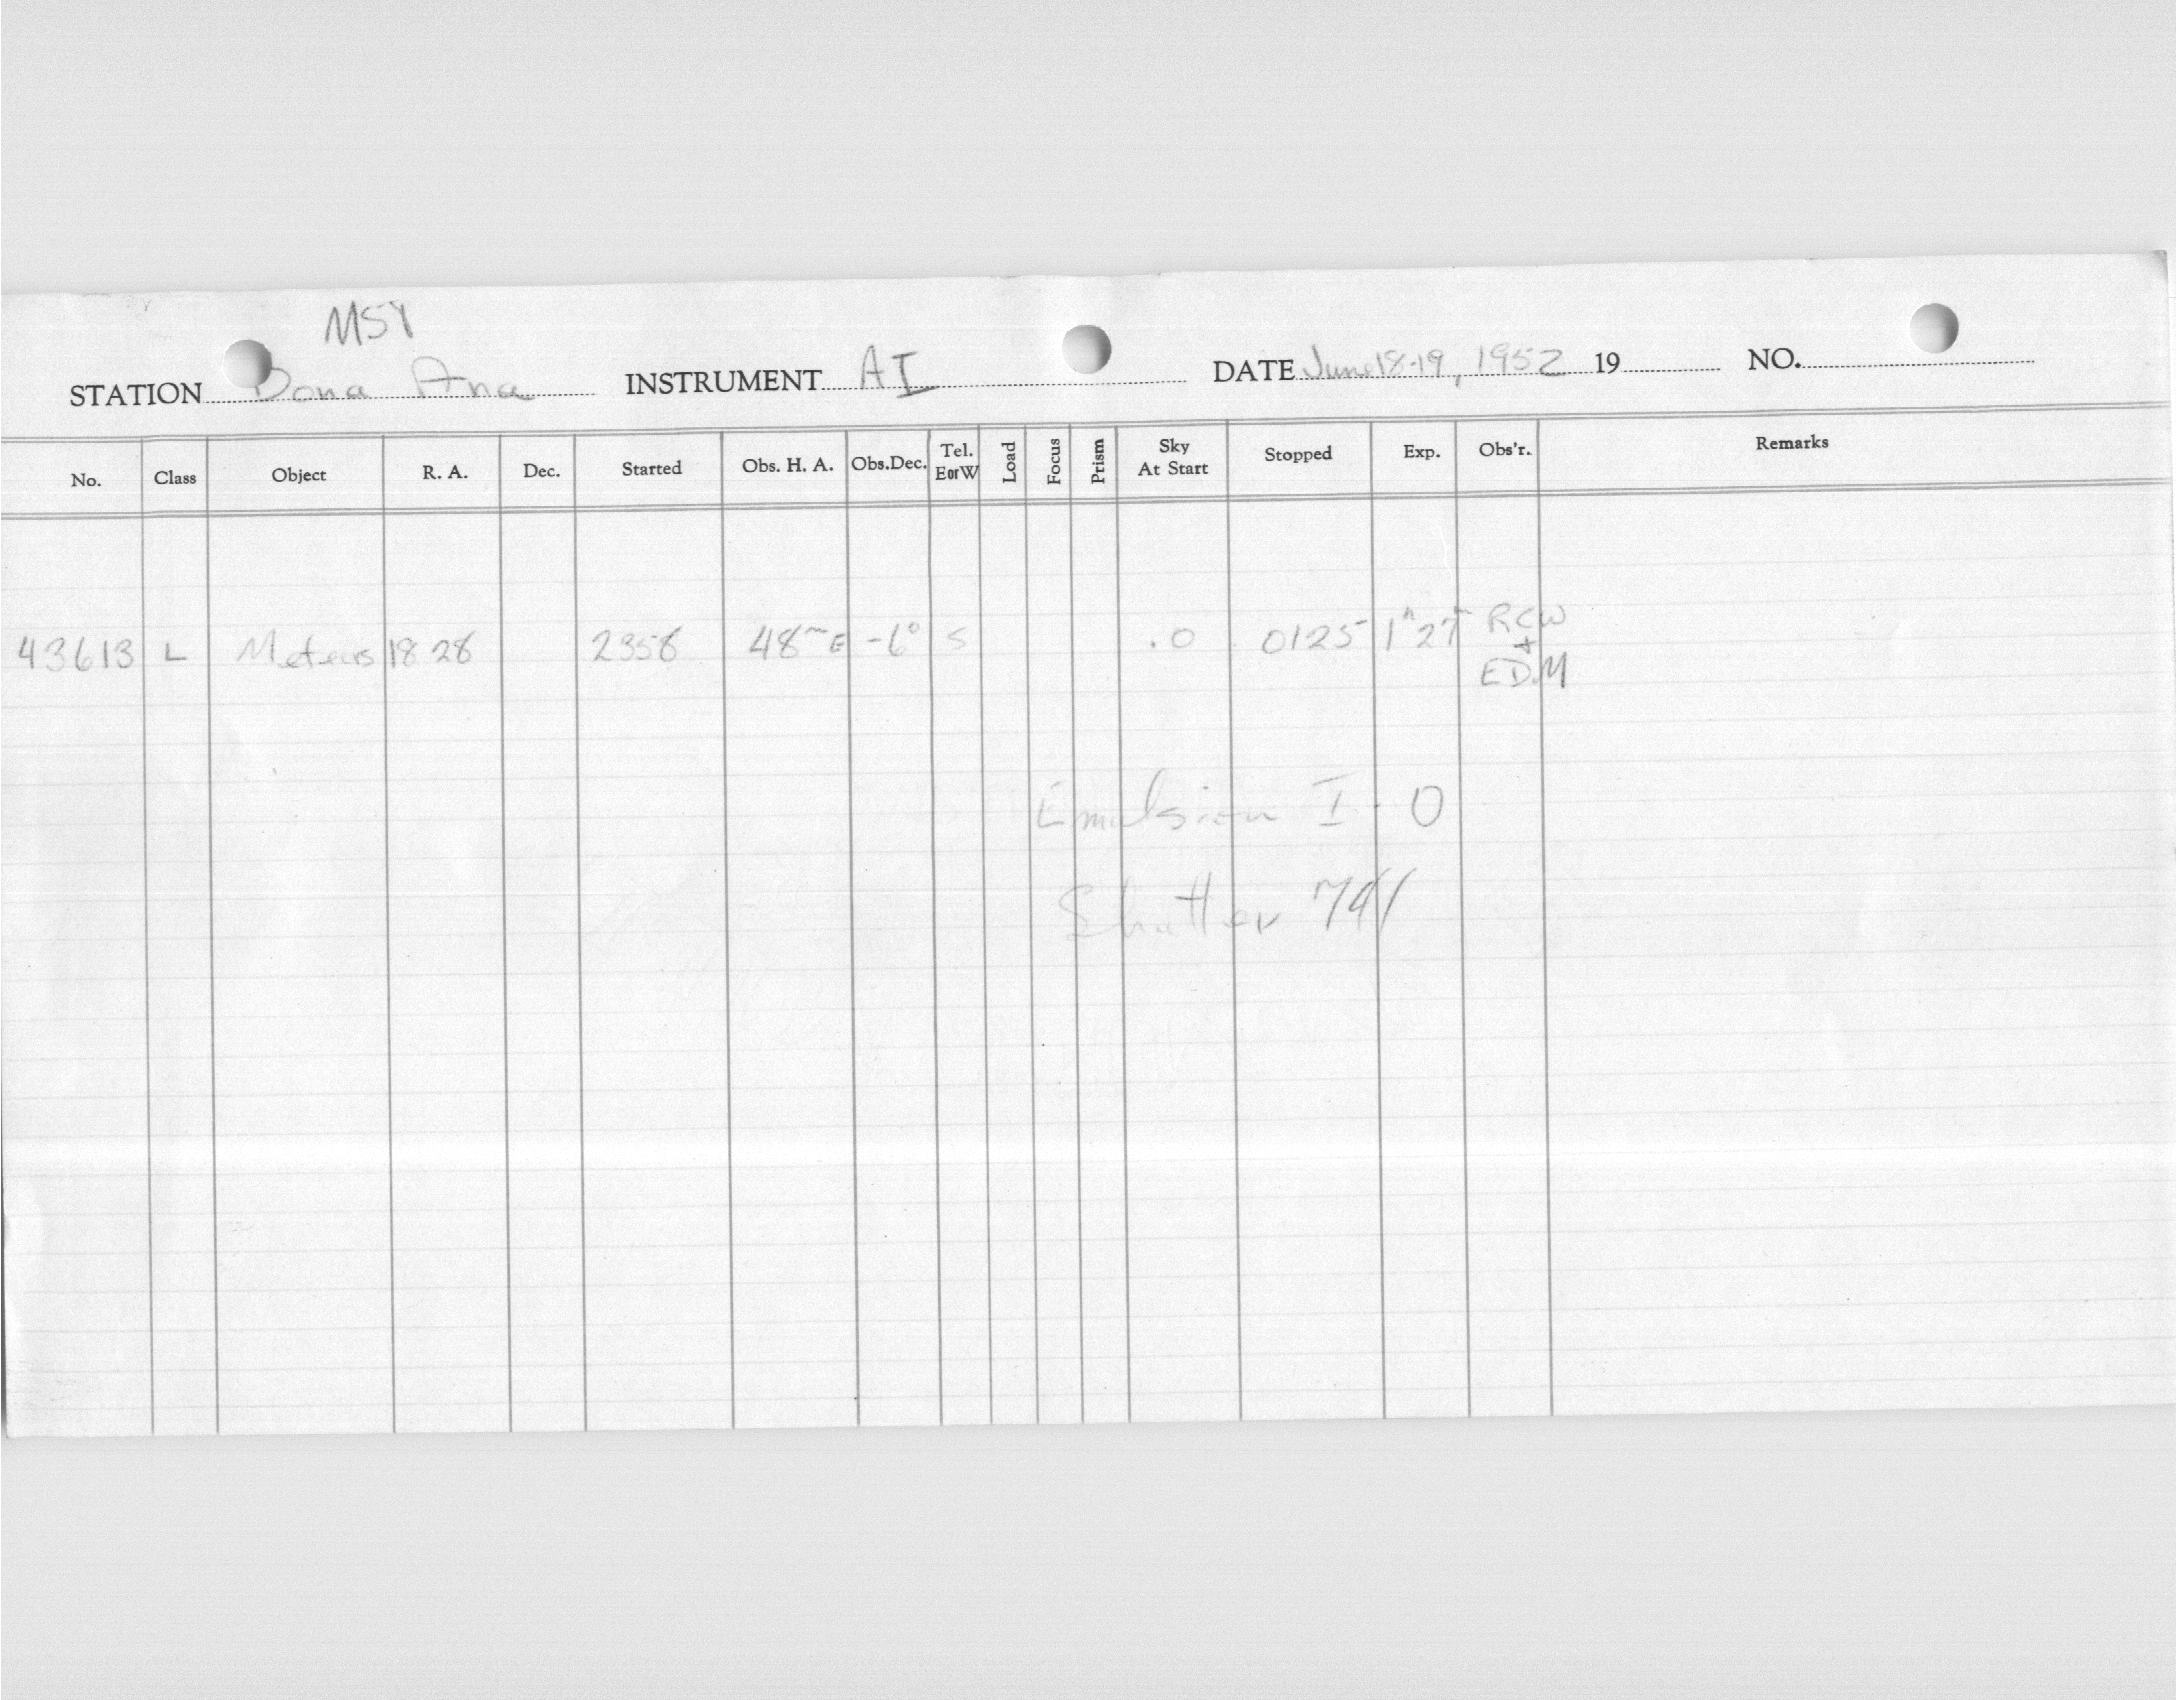 MSY
STATION Dona Ana INSTRUMENT AI DATE June 18-19, 1952 19 NO.
No. Class Object R. A. Dec. Started Obs. H. A. Obs.Dec. Tel. E or W Load Focus Prism Sky At Start Stopped Exp. Obs'r. Remarks
43613 L Meteors 18 28 2358 48m E -6° S .0 0125 1h 27m RCW
+
EDM
Emulsion I-O
Shutter 741